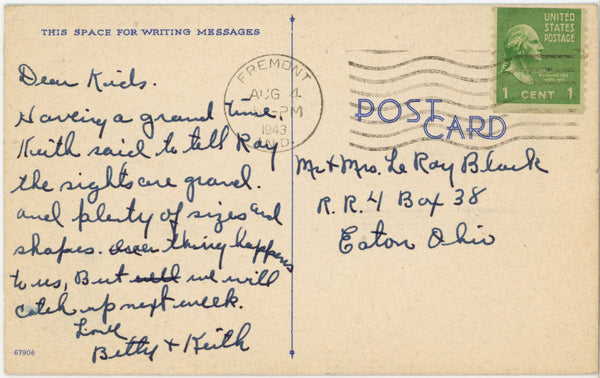 THIS SPACE FOR WRITING MESSAGES
Dear Kids.
Having a grand time.
Keith said to tell Ray
the sights are grand.
and plenty of sizes and
shapes. thing happens
to us, But we will
catch up next week.
Love
Betty + Keith
67906
FREMONT
AUG 4
PM
1943
IND.
UNITED
STATES
POSTAGE
WASHINGTON
1 CENT 1
POST
CARD
Mr + Mrs. Le Roy Black
R.R. 4 Box 38
Eaton Ohio